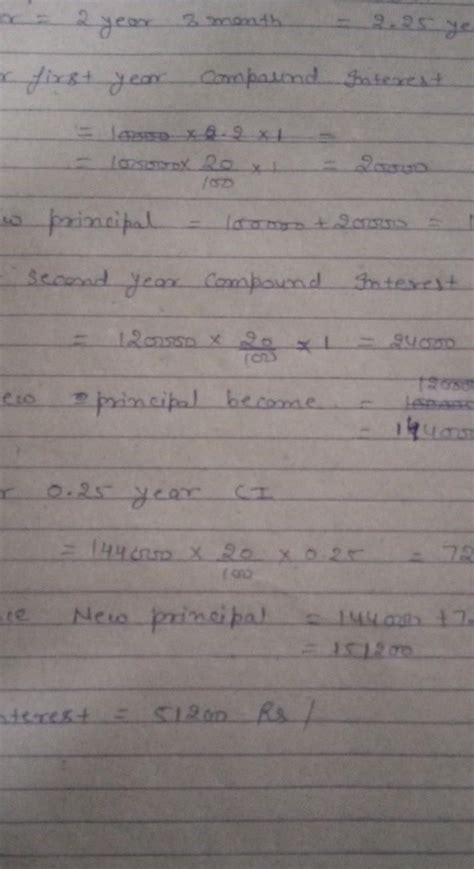 r = 2 year 3 month = 2.25 ye
r first year Compound Interest
= 100000 × 2.2 × 1 =
= 1000000 × 20/100 × 1 = 20000
w principal = 100000 + 20000 = 1
second year Compound Interest
= 120000 × 20/100 × 1 = 24000
ew principal become = 100000 12000
= 144000
r 0.25 year CI
= 144000 × 20/100 × 0.25 = 72
ce New principal = 144000 + 7
= 151200
nterest = 51200 Rs /